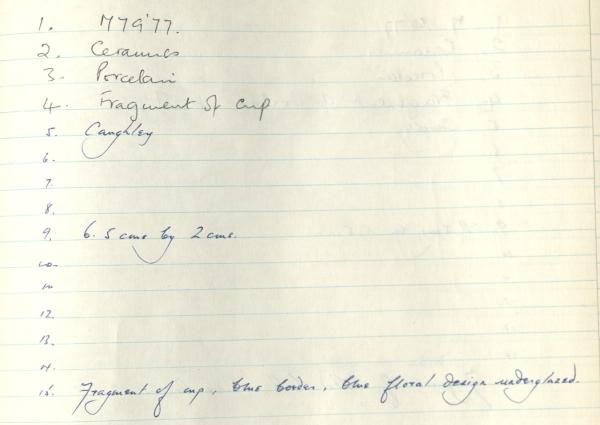 1. M79'77.
2. Ceramics
3. Porcelain
4. Fragment of cup
5. Caughley
6.
7.
8.
9. 6.5 cms by 2 cms.
10.
11.
12.
13.
14.
15. Fragment of cup, blue border, blue floral design underglazed.